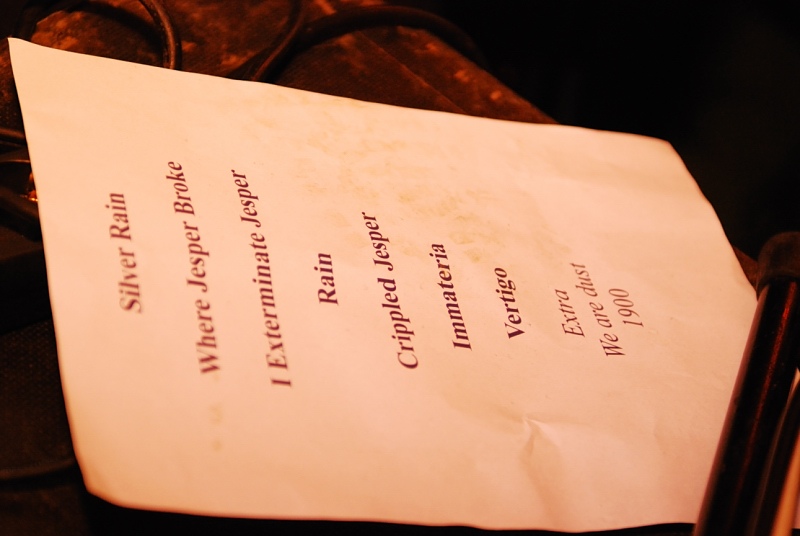 Silver Rain
Where Jesper Broke
I Exterminate Jesper
Rain
Crippled Jesper
Immateria
Vertigo
Extra
We are dust
1900